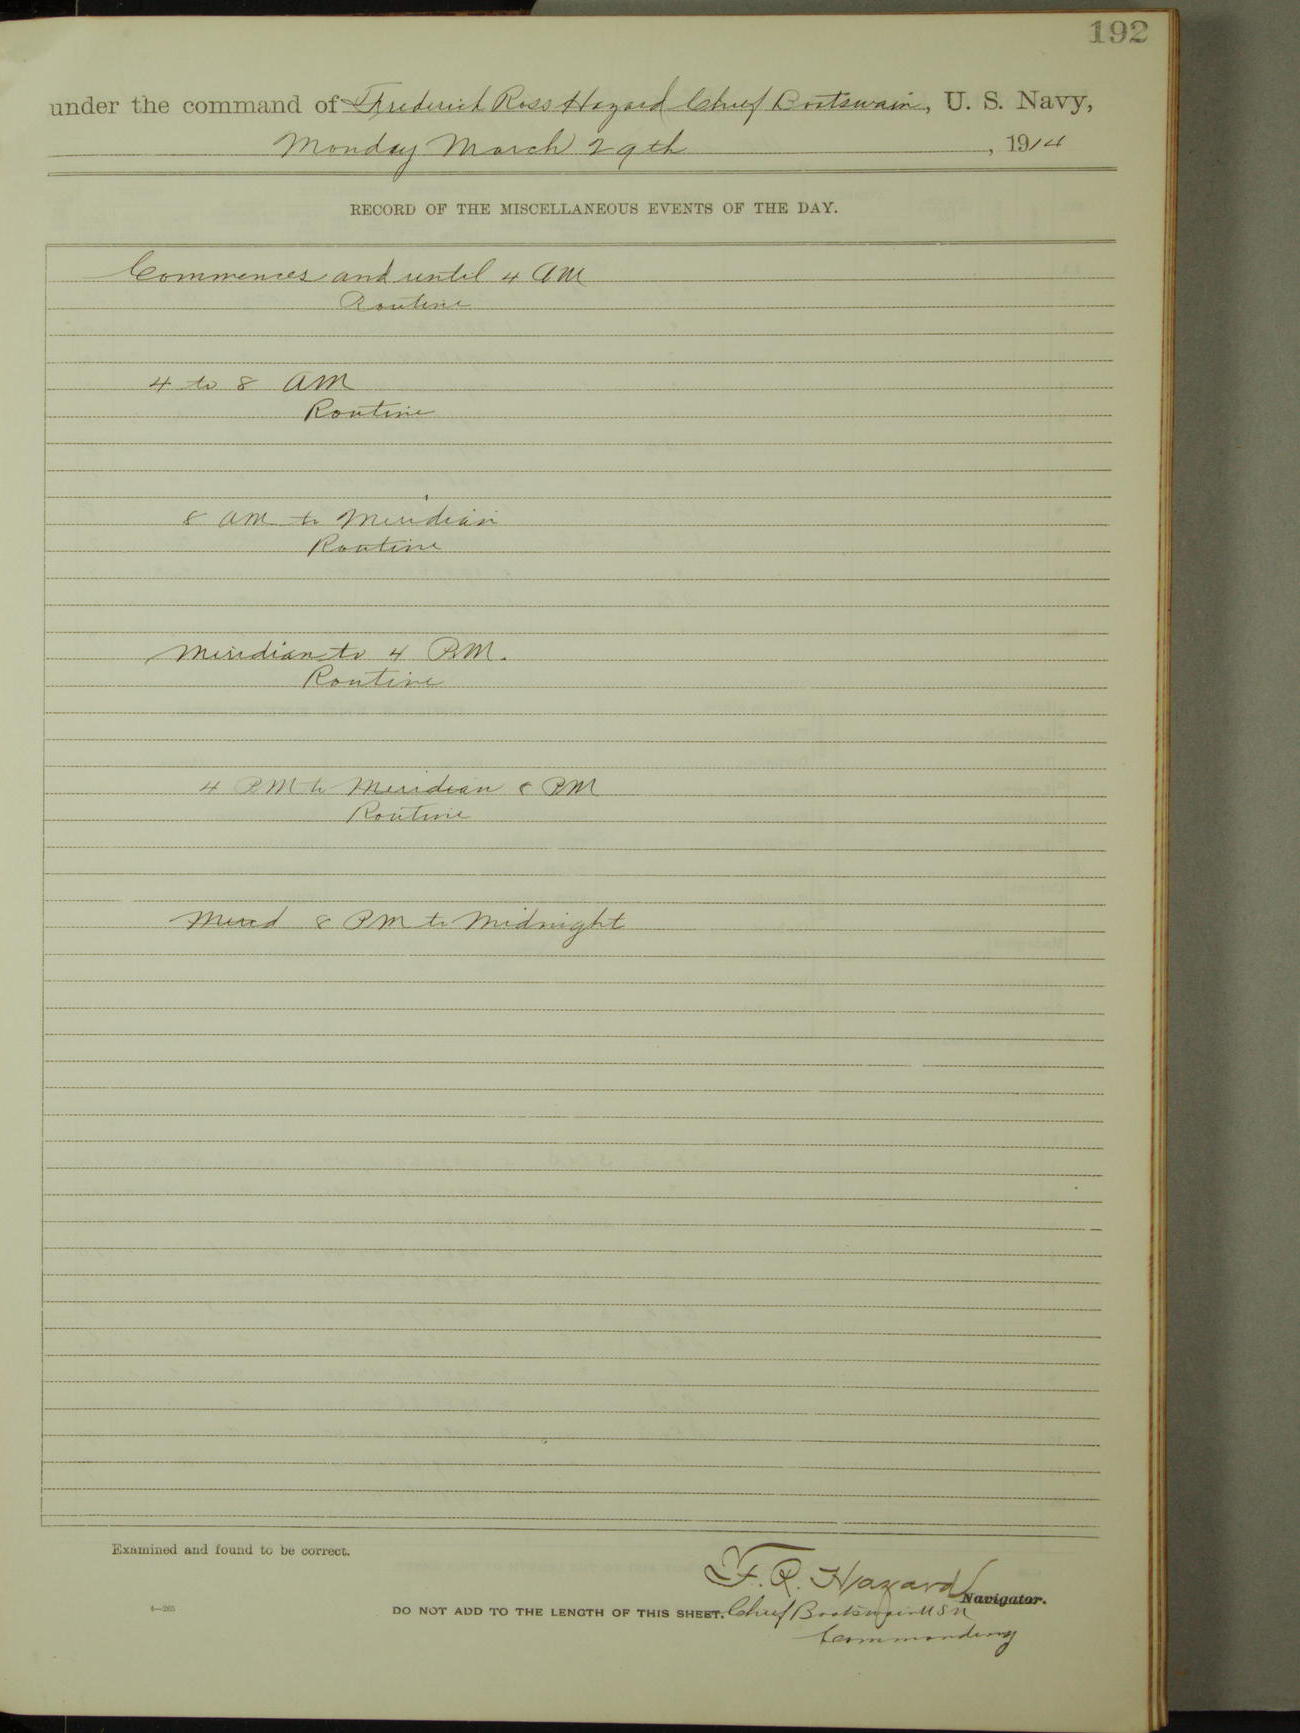 192
under the command of Frederick Ross Hazard Chief Boatswain, U. S. Navy,
Monday March 29th, 1914
RECORD OF THE MISCELLANEOUS EVENTS OF THE DAY.
Commences and until 4 AM
Routine
4 to 8 AM
Routine
8 AM to Meridian
Routine
Meridian to 4 PM.
Routine
4 PM to Meridian 8 PM
Routine
Merid 8 PM to Midnight
Examined and found to be correct.
F. R. Hazard
Navigator.
4—265
DO NOT ADD TO THE LENGTH OF THIS SHEET. Chief Boatswain USN
Commanding